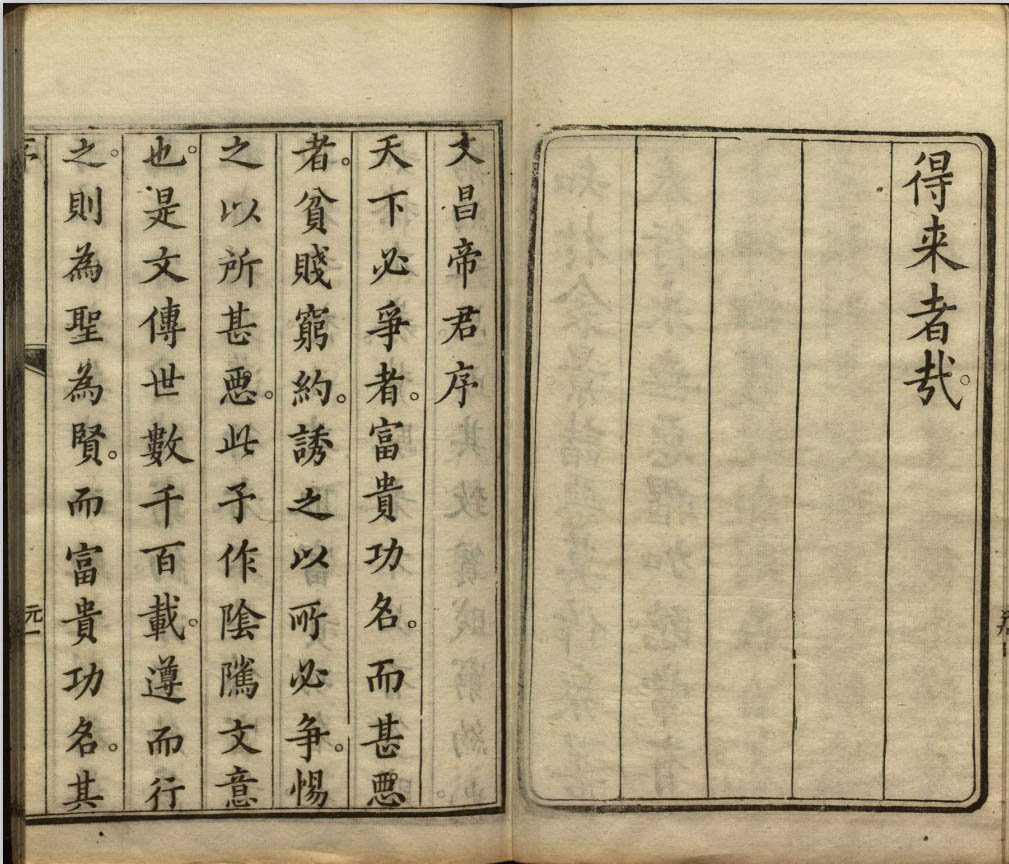 得来者哉。
文昌帝君序
天下必爭者。富貴功名。而甚惡
者。貧賤窮約。誘之以所必争。惕
之以所甚惡。此予作陰隲文意
也。是文傳世數千百載。遵而行
之。則為聖為賢。而富貴功名。其
元一